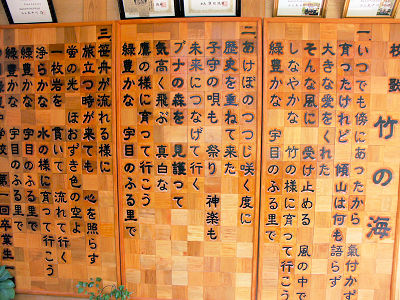 校歌 竹の海
一 いつでも傍にあったから 氣付かず
育ったけれど 傾山は何も語らず
大きな愛をくれた
そんな風に 受け止める 風の中で
しなやかな 竹の様に育って行こう
緑豊かな 宇目のふる里で
二 あけぼのつつじ咲く度に
歴史を重ねて来た
子守の唄も 祭り 神楽も
未来につなげて行く
ブナの森を 見護って
気高く飛ぶ 真白な
鷹の様に育って行こう
緑豊かな 宇目のふる里で
三 笹舟が流れる様に
旅立つ時が来ても 心を照らす
蛍の光 ほおずき色の空よ
一枚岩を 貫いて 流れて行く
浄らかな 水の様に育って行こう
緑豊かな 宇目のふる里で
緑豊かな 宇目のふる里で
学校 第二回卒業生